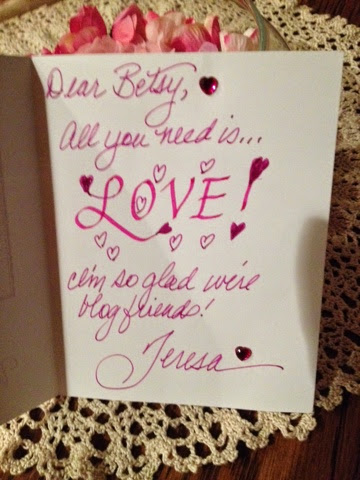 Dear Betsy,
All you need is...
LOVE!
I'm so glad we're
blog friends!
Teresa